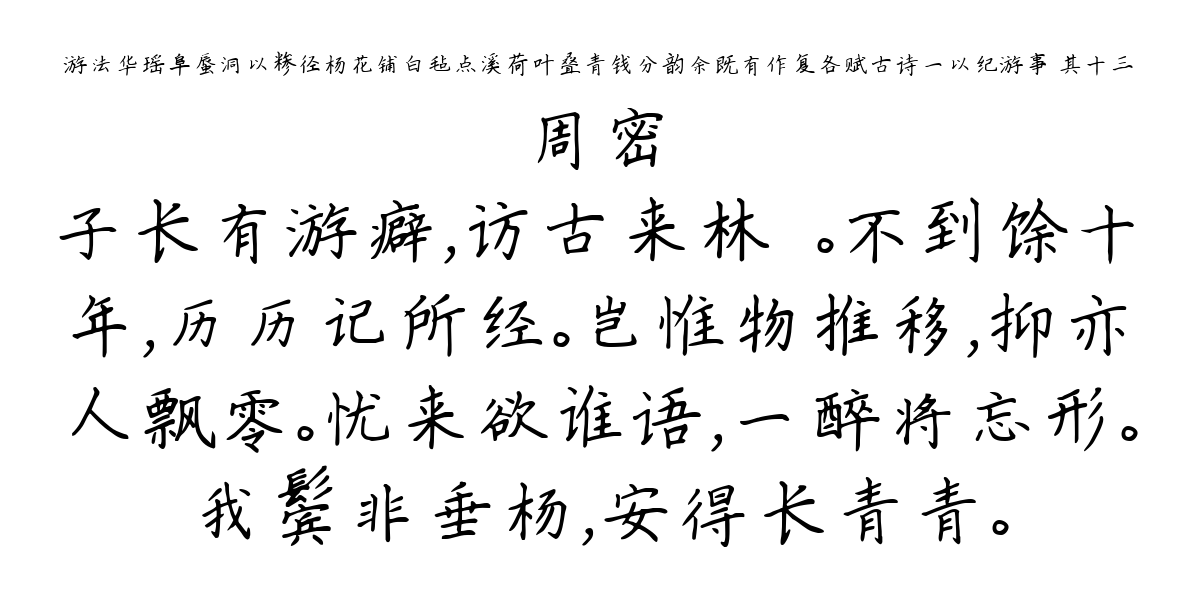 游法华瑶阜蜃洞以糁径杨花铺白毡点溪荷叶叠青钱分韵余既有作复各赋古诗一以纪游事 其十三
周密
子长有游癖,访古来林 。不到馀十
年,历历记所经。岂惟物推移,抑亦
人飘零。忧来欲谁语,一醉将忘形。
我鬓非垂杨,安得长青青。